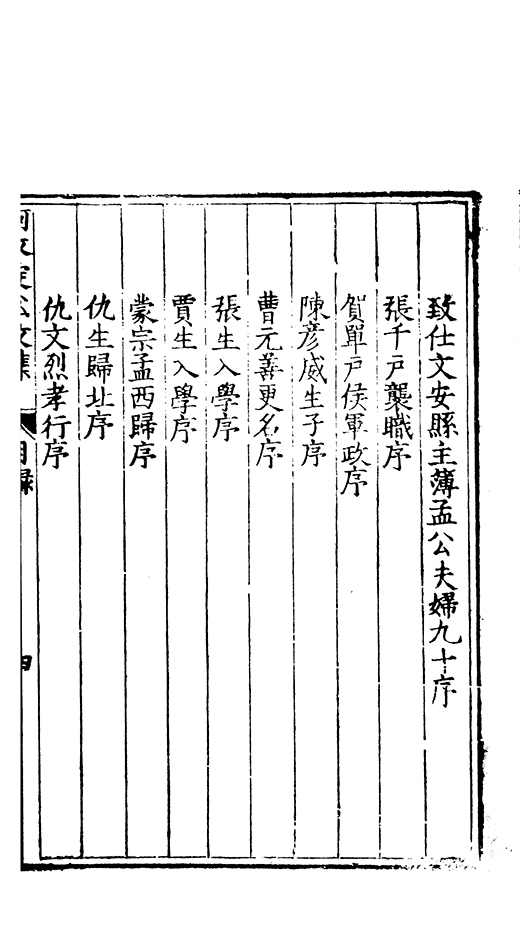 致仕文安縣主薄孟公夫婦九十序
張千戶襲職序
賀單戶侯軍政序
陳彦威生子序
曹元善更名序
張生入學序
賈生入學序
蒙宗孟西歸序
仇生歸北序
仇文烈孝行序
文集
目録
四